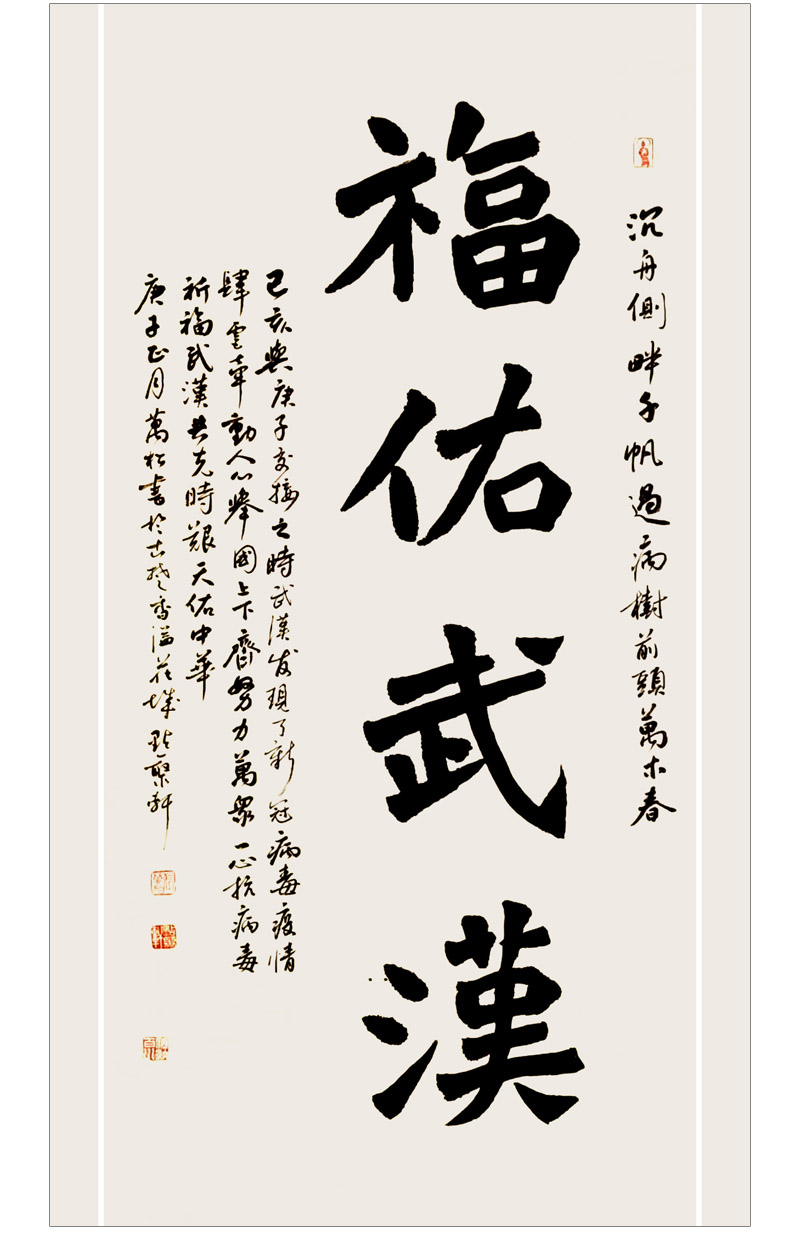 沉舟側畔千帆過病樹前頭萬木春
福佑武漢
己亥與庚子交接之時武漢發現了新冠病毒疫情
肆虐牽動人心舉國上下齊努力萬眾一心抗病毒
祈福武漢共克時艱天佑中華
庚子正月萬松書於古楚香溢花城點聚軒